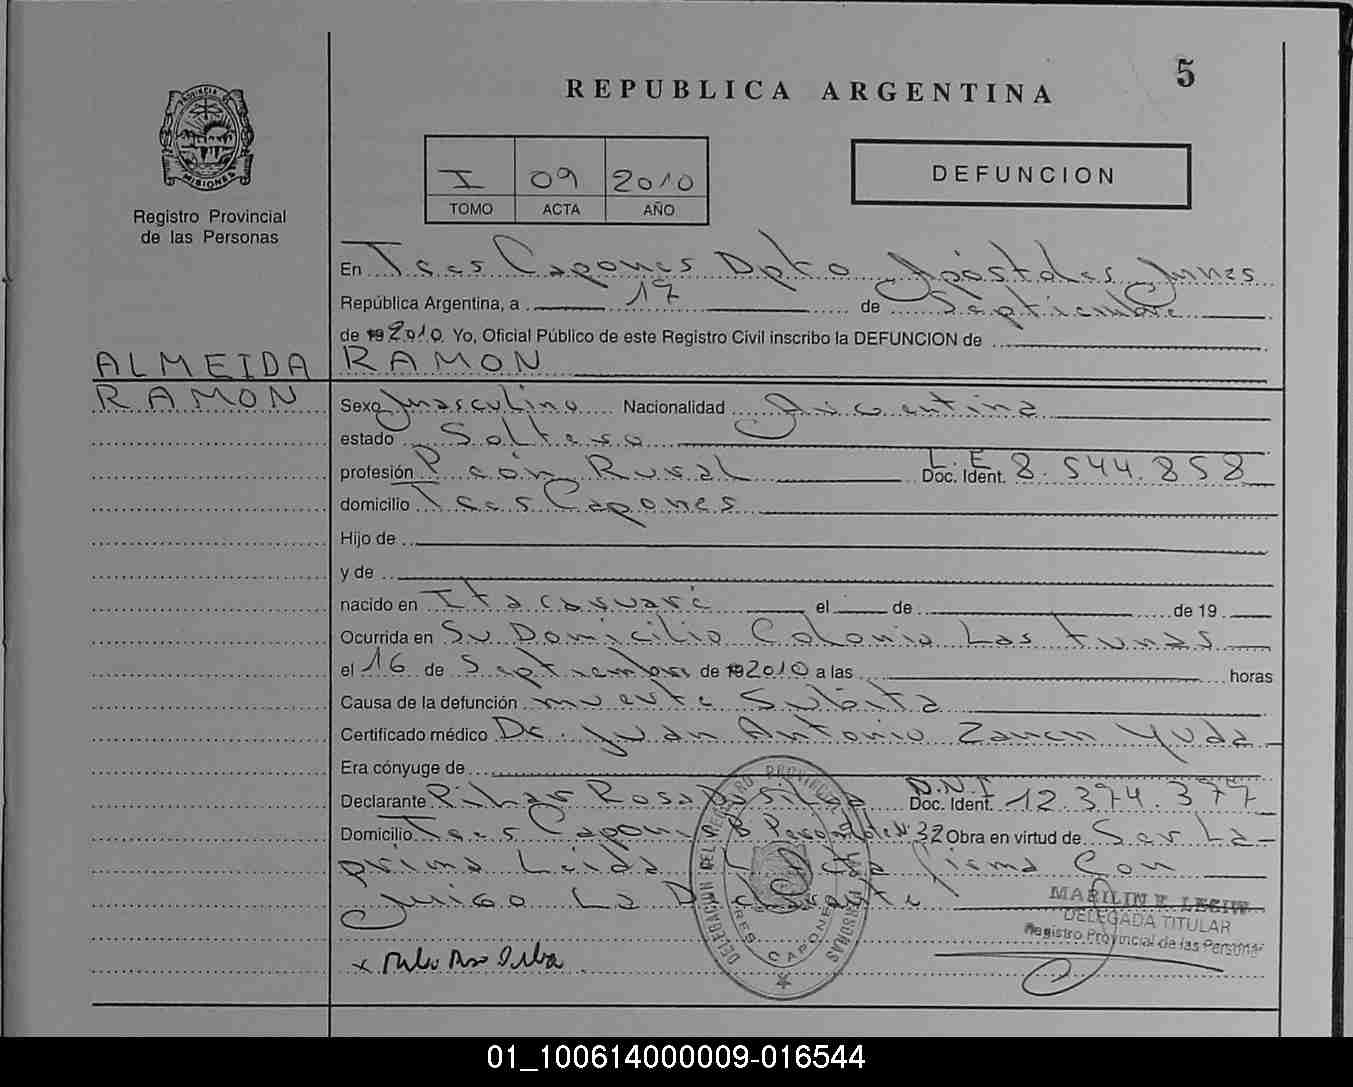 5
REPUBLICA ARGENTINA
PROVINCIA DE
MISIONES
Registro Provincial
de las Personas
I 09 2010
TOMO ACTA AÑO
DEFUNCION
En Tres Capones Dpto Apóstoles Mnes
República Argentina, a 17 de Septiembre
de 192010 Yo, Oficial Público de este Registro Civil inscribo la DEFUNCION de
ALMEIDA RAMON
RAMON
Sexo Masculino Nacionalidad Argentina
estado Soltero
profesión Peón Rural L.E Doc. Ident. 8.544.858
domicilio Tres Capones
Hijo de
y de
nacido en Itacaruaré el de de 19
Ocurrida en Su Domicilio Colonia Las Tunas
el 16 de Septiembre de 192010 a las horas
Causa de la defunción muerte Subita
Certificado médico Dr. Juan Antonio Yuda
Era cónyuge de
Declarante Rosa Silva D.N.I Doc. Ident. 12.374.377
Domicilio Tres Capones 32 Obra en virtud de Ser La
prima Leida La Acta firma Con
migo La Declarante
DELEGACION DEL REGISTRO PROVINCIAL DE LAS PERSONAS
TRES CAPONES
MARILIN E.
DELEGADA TITULAR
Registro Provincial de las Personas
x
01_100614000009-016544